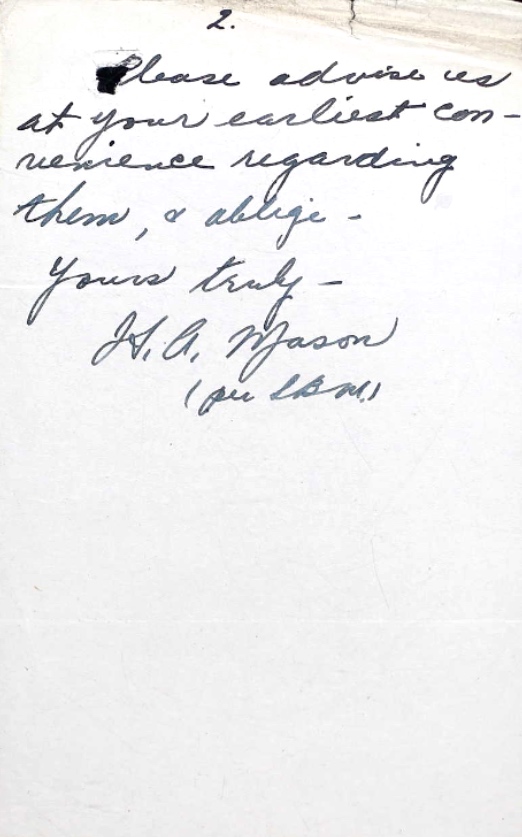 2.
Please advise us
at your earliest con-
venience regarding
them, & oblige -
Yours truly -
H. A. Mason
(per LBM.)